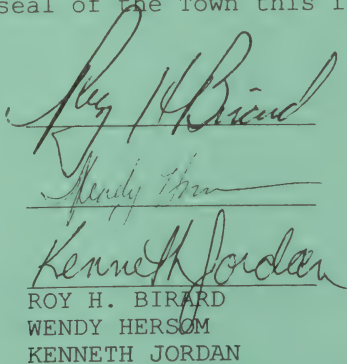 seal of the Town this
Roy H Birard
Wendy
Kenneth Jordan
ROY H. BIRARD
WENDY HERSOM
KENNETH JORDAN